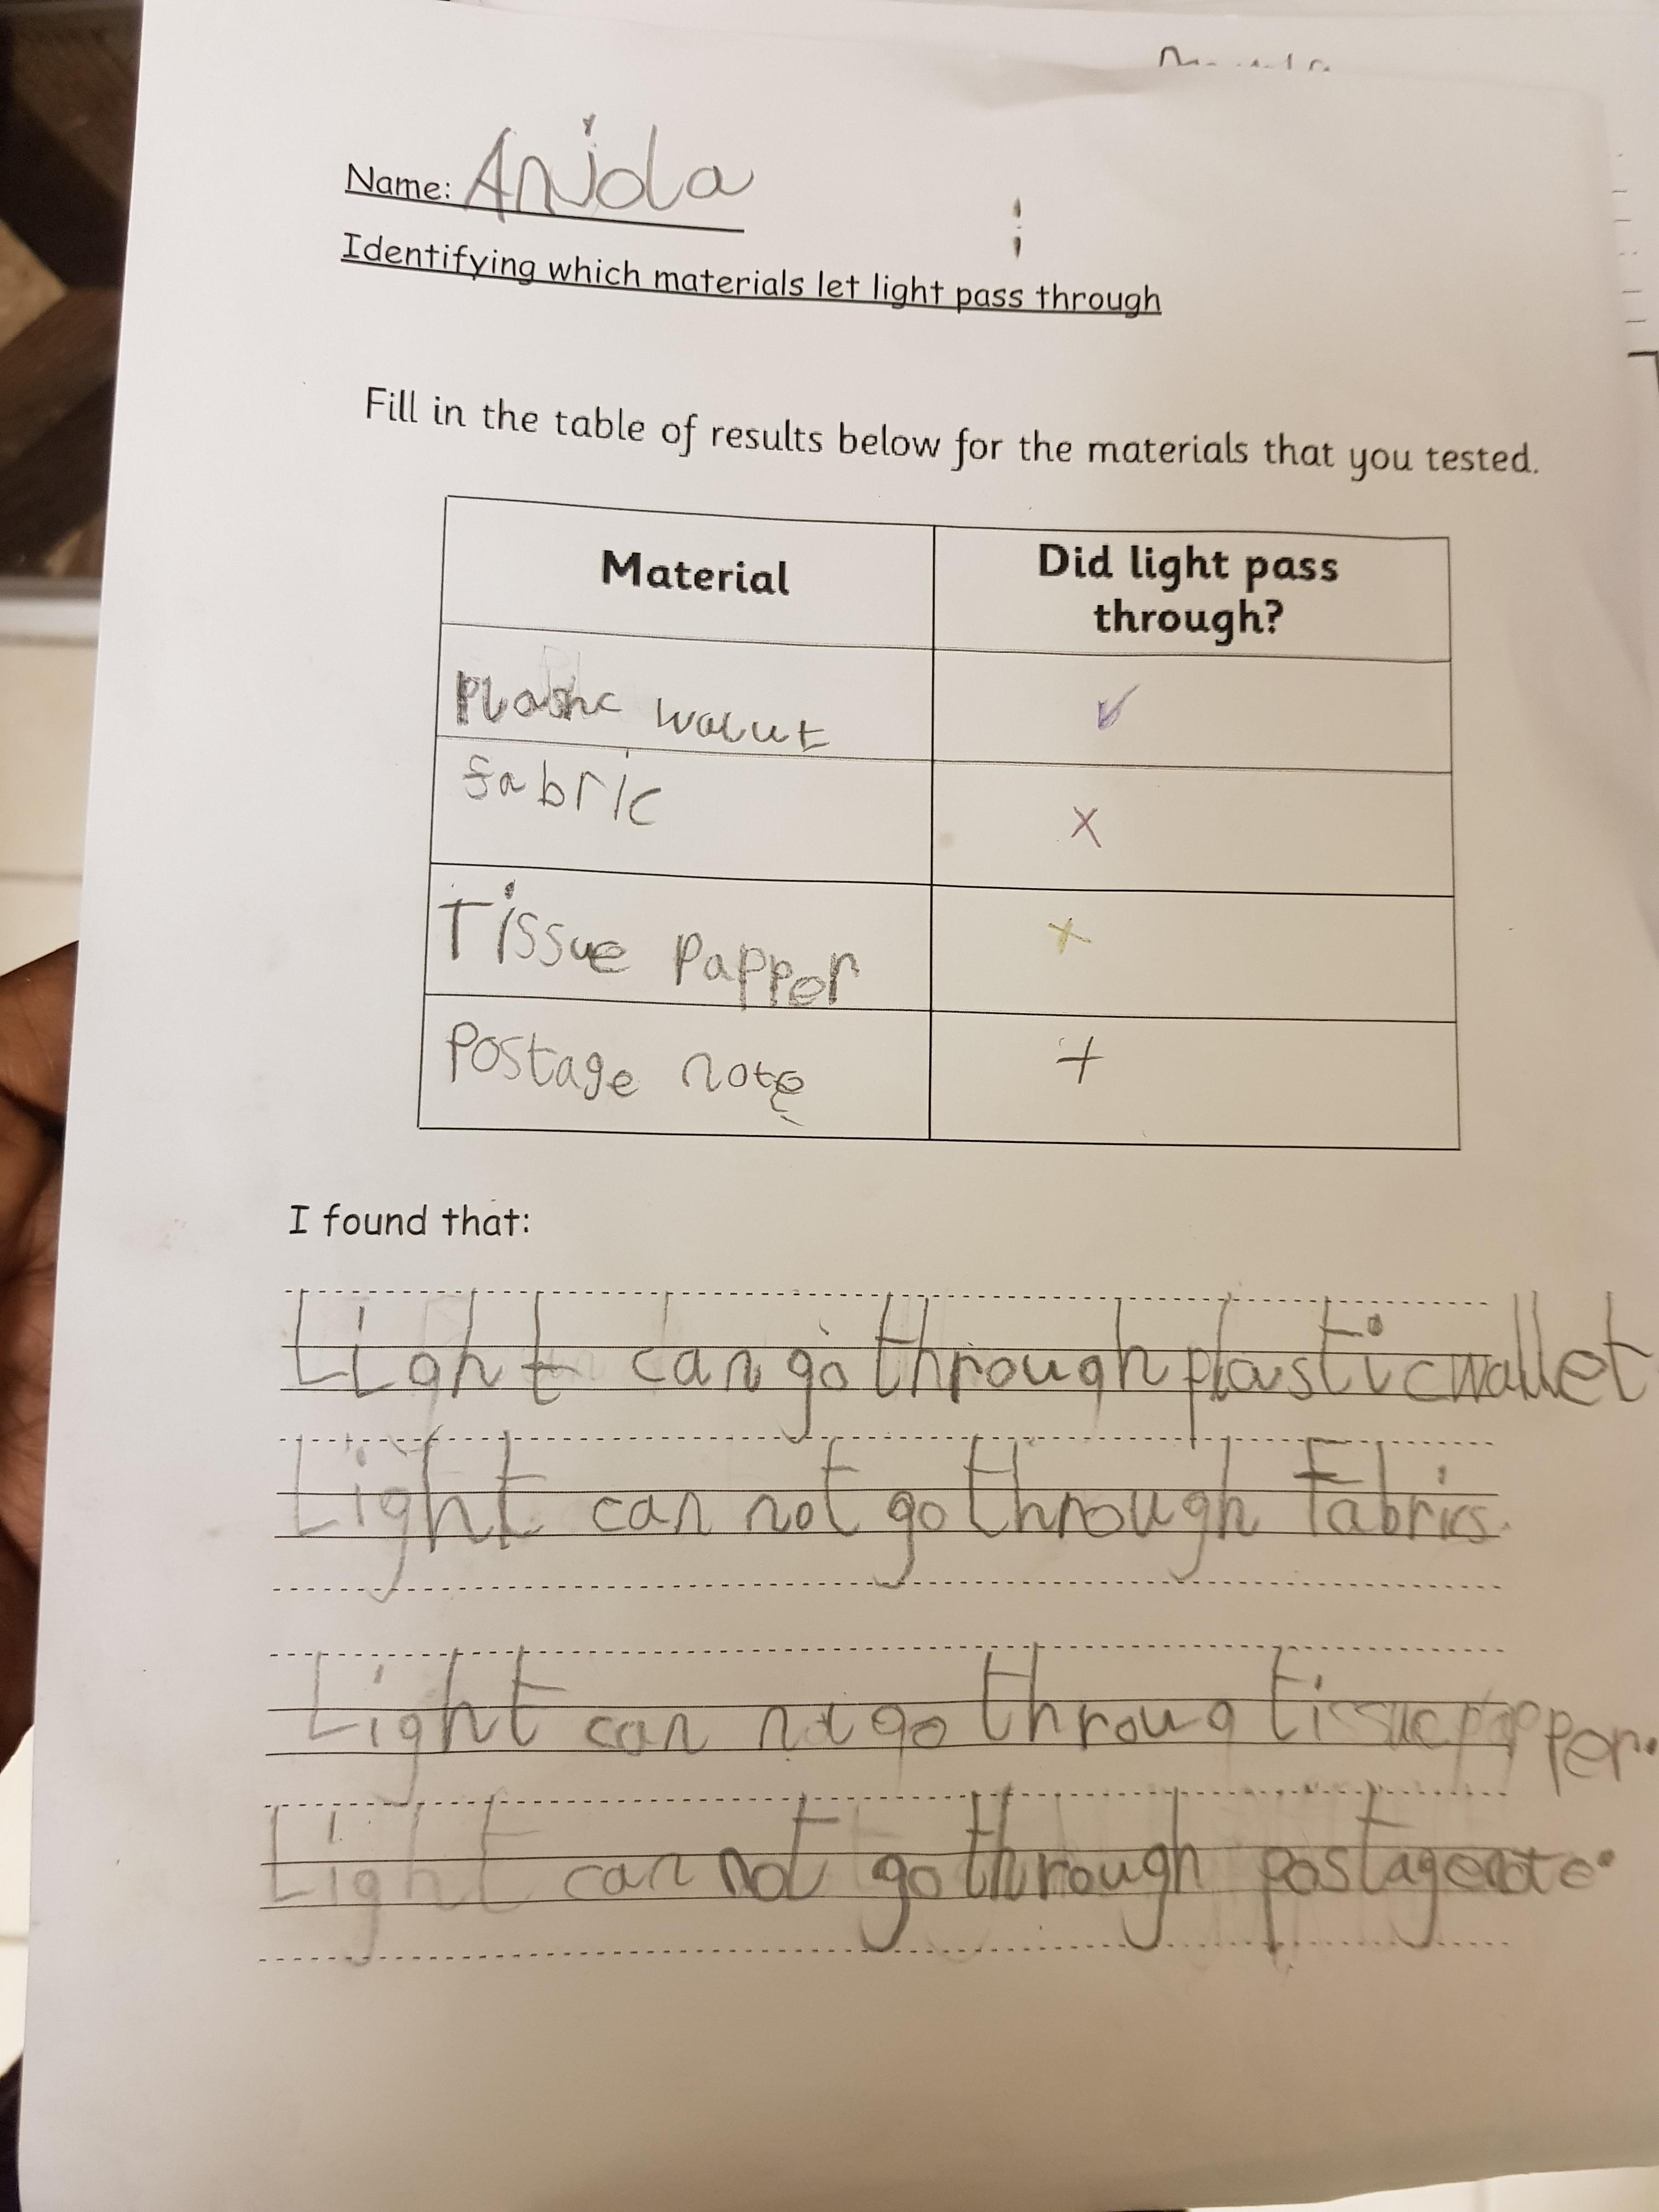 Name: Anjola
Identifying which materials let light pass through
Fill in the table of results below for the materials that you tested.
Material
Did light pass through?
Plastic walut ✓
fabric x
Tissue Papper x
Postage note x
I found that:
Light can go through plastic wallet
Light can not go through Fabrics.
Light can not go throug tissue papper.
Light can not go through postage note.